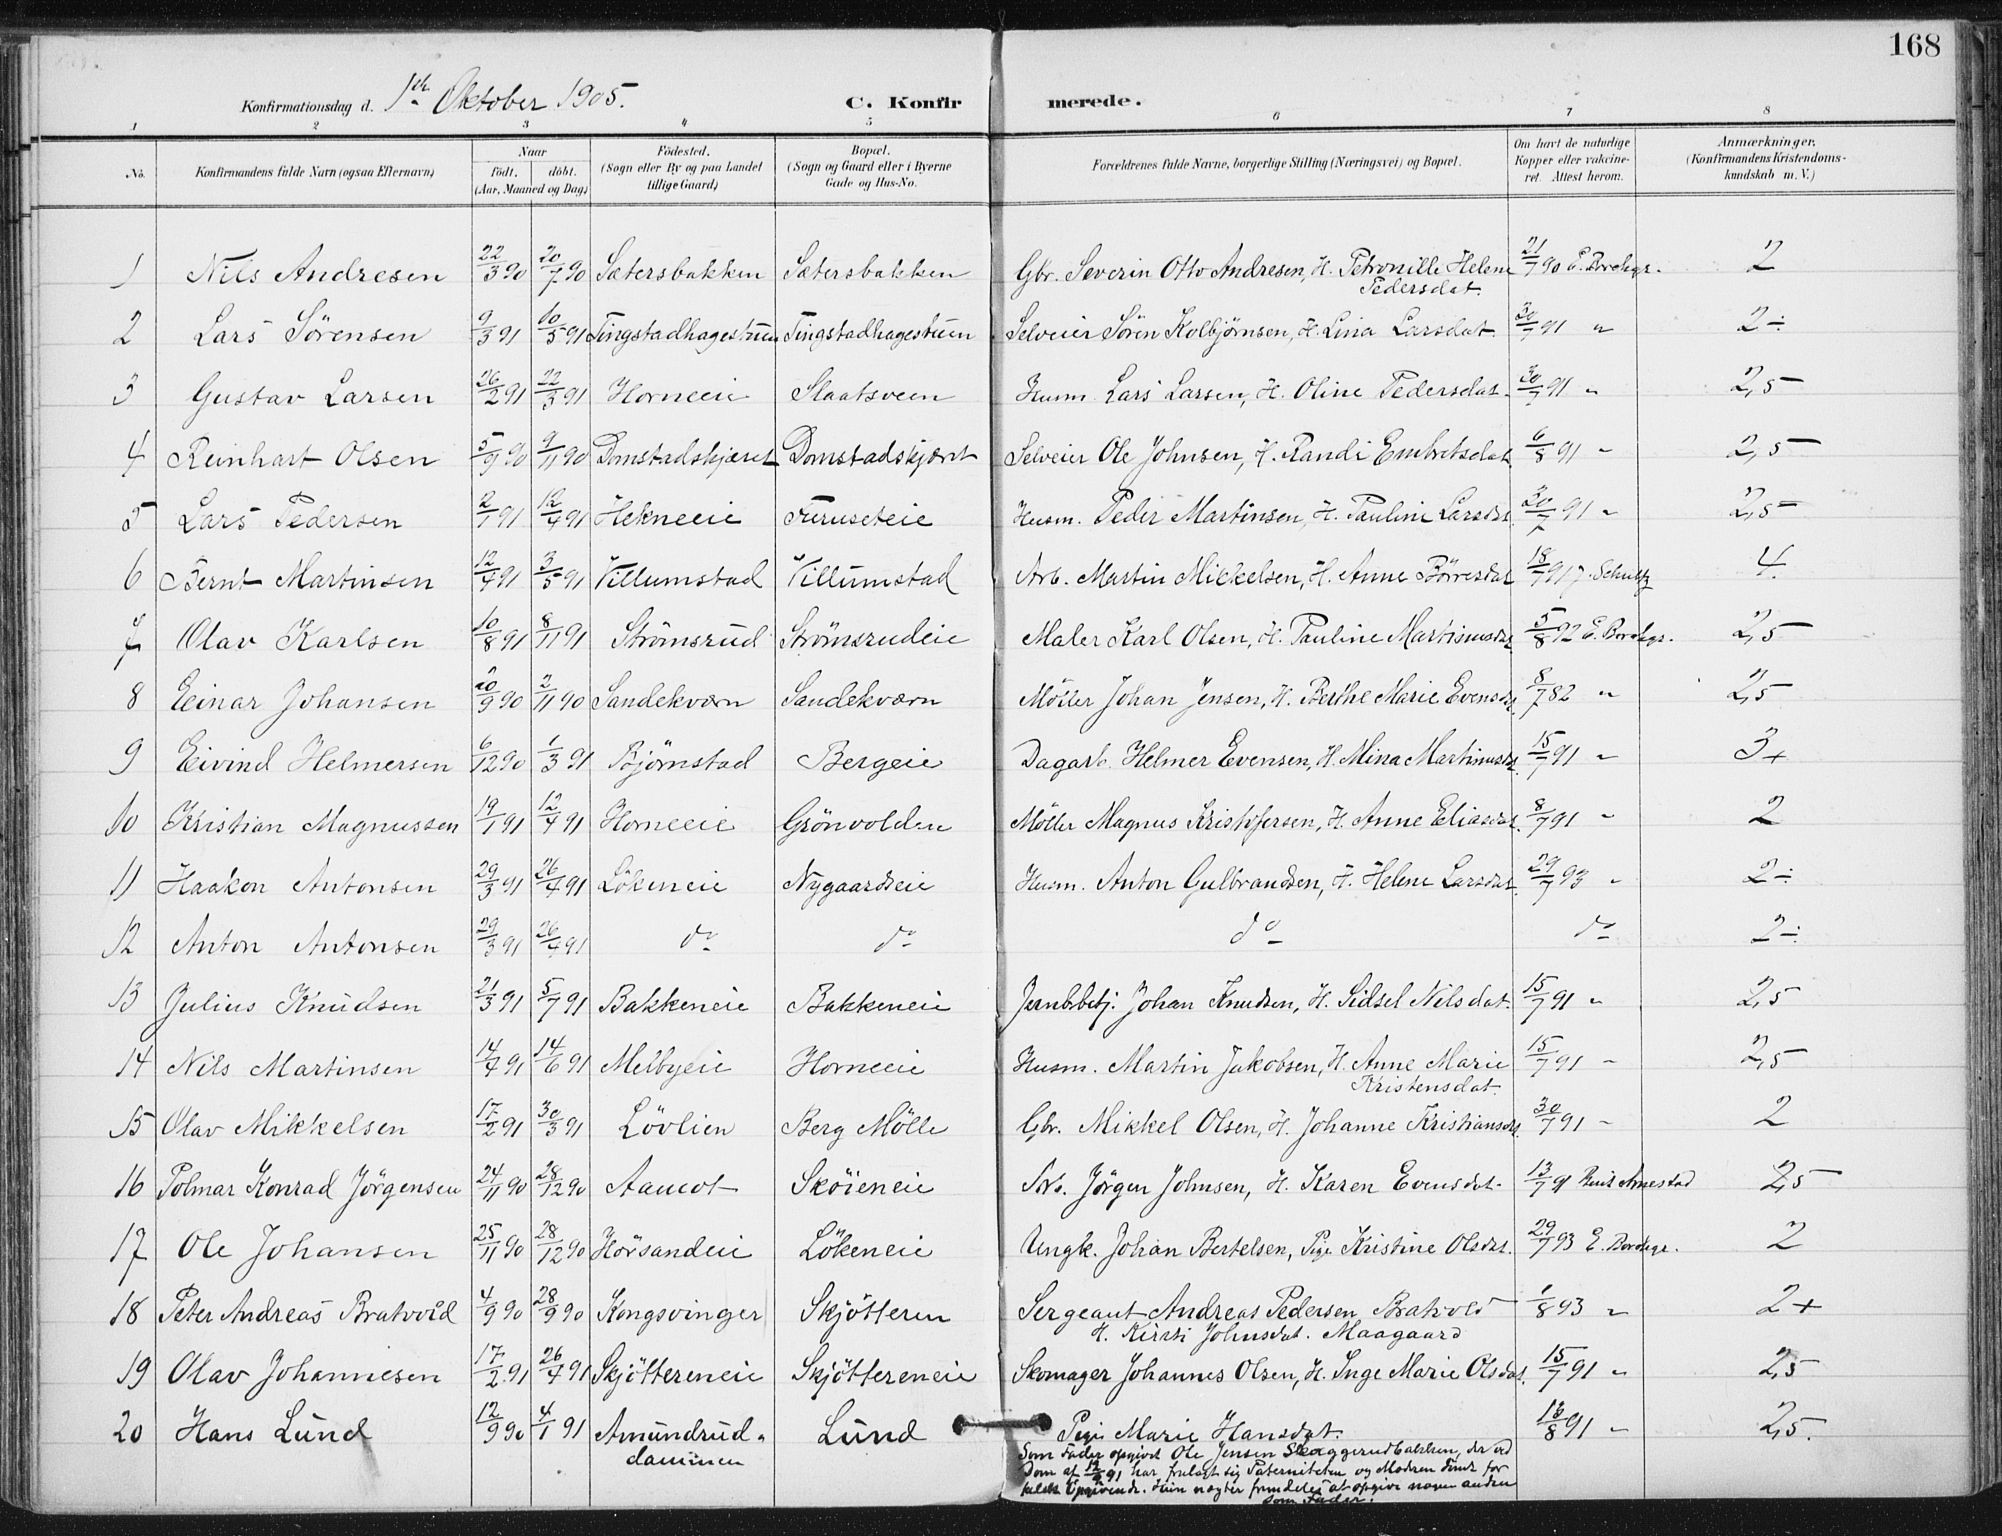 168
Konfirmationsdag d. 1ste Oktober 1905. C. Konfirmerede.
1 2 3 4 5 6 7 8
No. Konfirmandens fulde Navn (ogsaa Efternavn) Naar födt. döbt. (Aar, Maaned og Dag) Födested. (Sogn eller By og paa Landet tillige Gaard) Bopæl. (Sogn og Gaard eller i Byerne Gade og Hus-No. Forældrenes fulde Navne, borgerlige Stilling (Næringsvei) og Bopæl. Om havt de naturlige Kopper eller vakcineret. Attest herom. Anmærkninger. (Konfirmandens Kristendomskundskab m. V.)
1 Nils Andresen 22/3 90 20/7 90 Sætersbakken Sætersbakken Gbr. Severin Otto Andresen, H. Petronille Helene 21/7 90 2
Pedersdat.
2 Lars Sørensen 9/3 91 10/5 91 Tingstadhagestuen Tingstadhagestuen Selveier Søren Kolbjørnsen, H. Lina Larsdat. 30/7 91 " 2÷
3 Gustav Larsen 26/2 91 22/3 91 Horneeie Slaatsveen Husm. Lars Larsen, H. Oline Pedersdat. 30/7 91 " 2,5
4 Reinhart Olsen 5/9 90 9/11 90 Domstadskjæret Domstadskjæret Selveier Ole Johnsen, H. Randi Embretsdat. 6/8 91 " 2,5
5 Lars Pedersen 2/1 91 12/4 91 Hekneeie Furuseteie Husm. Peder Martinsen, H. Pauline Larsdat. 30/7 91 " 2,5
6 Bernt Martinsen 12/4 91 3/5 91 Villumstad Villumstad Arb. Martin Mikkelsen, H. Anne Börresdat. 18/7 91 J. Schultz 4
7 Olav Karlsen 10/8 91 8/11 91 Strömsrud Strömsrudeie Maler Karl Olsen, H. Pauline Martinusdat. 5/8 92 2,5
8 Einar Johansen 20/9 90 2/11 90 Sandekværn Sandekværn Möller Johan Jensen, H. Berthe Marie Evensdat. 8/7 82 " 2,5
9 Eivind Helmersen 6/12 90 1/3 91 Björnstad Bergeie Dagarb. Helmer Evensen, H. Mina Martinusdat. 15/7 91 " 3+
10 Kristian Magnussen 19/1 91 12/4 91 Horneeie Grönvolden Möller Magnus Kristofersen, H. Anne Eliasdat. 8/7 91 " 2
11 Haakon Antonsen 29/3 91 26/4 91 Lökeneie Nygaardseie Husm. Anton Gulbrandsen, H. Helene Larsdat. 29/7 93 " 2÷
12 Anton Antonsen 29/3 91 26/4 91 do do do do 2÷
13 Julius Knudsen 21/3 91 5/7 91 Bakkeneie Bakkeneie Jernb.betj. Johan Knudsen, H. Sidsel Nilsdat. 15/7 91 " 2,5
14 Nils Martinsen 14/4 91 14/6 91 Melbyeie Horneeie Husm. Martin Jakobsen, H. Anne Marie 15/7 91 " 2,5
Kristensdat.
15 Olav Mikkelsen 17/2 91 30/3 91 Lövlien Berg Mölle Gbr. Mikkel Olsen, H. Johanne Kristiansdat. 30/7 91 " 2
16 Polmar Konrad Jörgensen 24/11 90 28/12 90 Aamot Sköieneie Arb. Jörgen Johnsen, H. Karen Evensdat. 13/7 91 2,5
17 Ole Johansen 25/11 90 28/12 90 Hörsandeie Lökeneie Ungk. Johan Bertelsen, Pige Kristine Olsdat. 29/7 93 2
18 Peter Andreas Bratvold 4/9 90 28/9 90 Kongsvinger Skjötteren Sergeant Andreas Pedersen Bratvold 1/8 93 " 2+
H. Kirsti Johnsdat. Maagaard
19 Olav Johannesen 17/2 91 26/4 91 Skjöttereneie Skjöttereneie Skomager Johannes Olsen, H. Inge Marie Olsdat. 15/7 91 " 2,5
20 Hans Lund 12/9 90 4/1 91 Amundrud- Lund Pige Marie Hansdat. 13/8 91 " 2,5.
dammen
Som Fader opgivet Ole Jensen Skaggerudbakken, der ved
Dom af 12/9 91 har fralagt sig Paterniteten og Modren dömt for
falsk Opgivende. Hun nægter fremdeles at opgive nogen anden
som Fader.